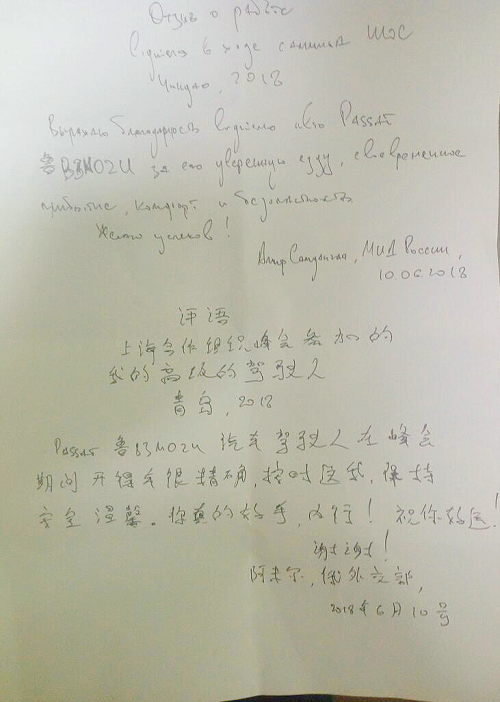 Отзыв о работе
водителя в ходе саммита ШОС
Циндао, 2018
Выражаю благодарность водителю авто PASSAT
鲁B3M02U за его уверенную езду, своевременное
прибытие, комфорт и безопасность
Желаю успехов!
Амир, МИД России,
10.06.2018
评语
上海合作组织峰会参加的
我的高级的驾驶人
青岛, 2018
PASSAT 鲁B3M02U 汽车驾驶人在峰会
期间开得车很精确, 按时送我, 保持
安全温馨。你真的好手, 内行! 祝你好运!
谢谢!
阿米尔, 俄外交部,
2018年6月10号